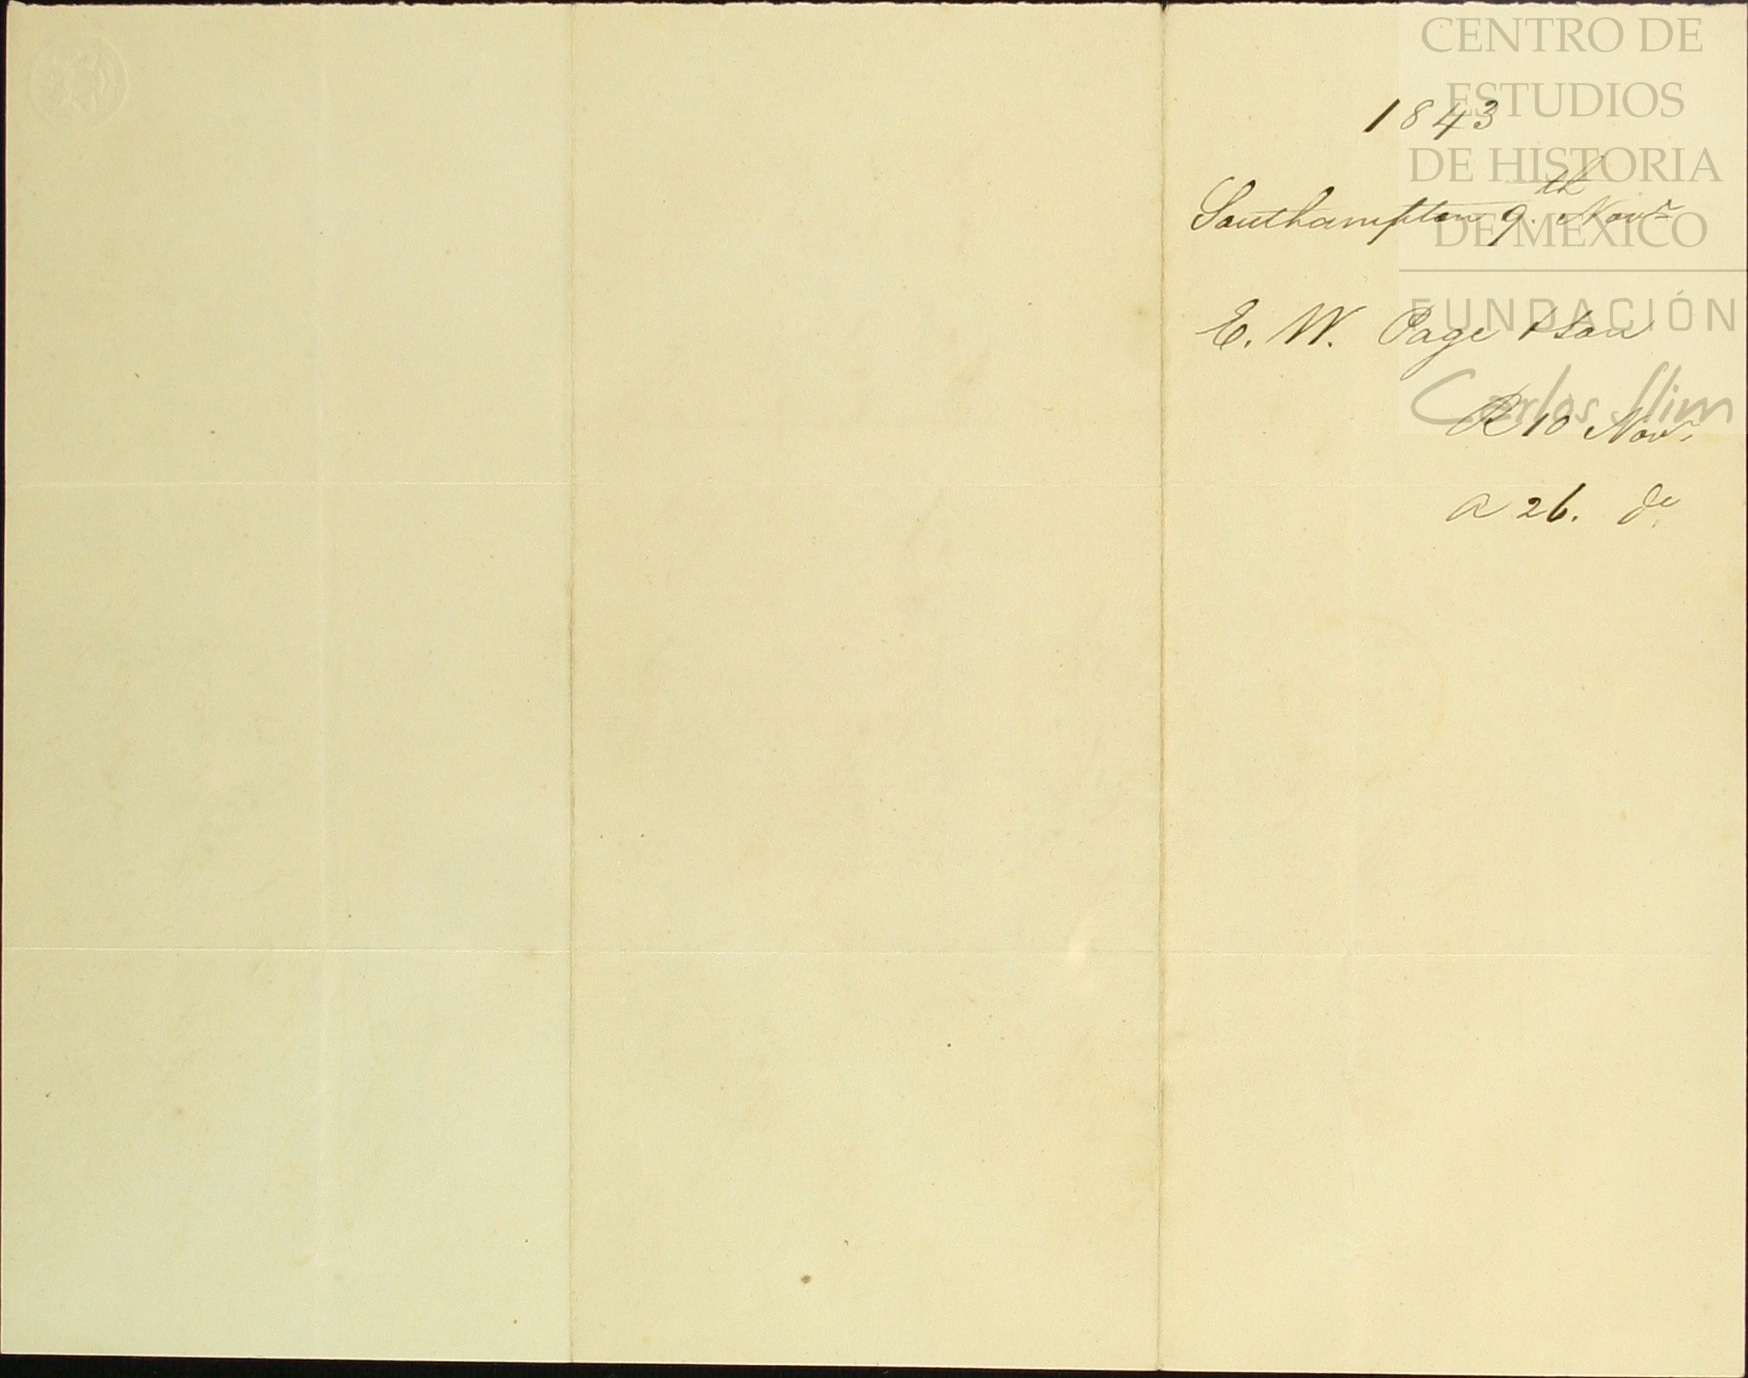 CENTRO DE
ESTUDIOS
DE HISTORIA
DE MÉXICO
FUNDACIÓN
Carlos Slim
1843
Southampton 9.th Novr
E. W. Page & Son
R 10 Novr.
A 26. do